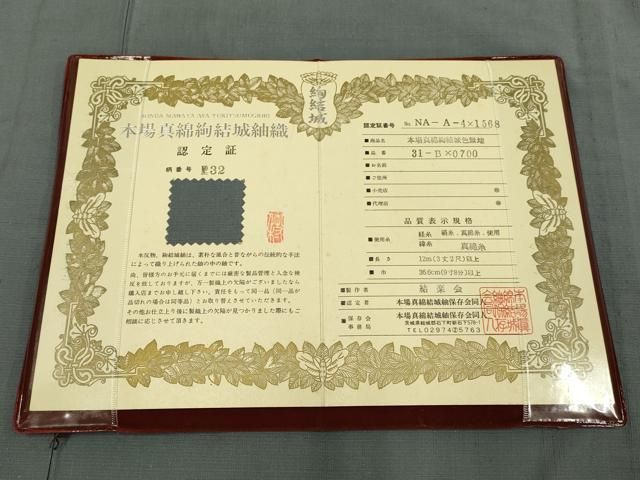 本場真綿絢結城紬織
認定証
柄番号 №32
本反物、絢結城紬は、素朴な風合と昔ながらの伝統的な手法
によって織り上げられた紬の中の紬です。
尚、皆様方のお手元に届くまでには厳密な製品管理と入念な検
反を致しておりますが、万一製織上の欠陥がございましたなら
購入店までお申し越し下さい。責任をもって同一品（同一品が
品切れの場合は同等品）とお取り替えさせていただきます。
その他お仕立上り後に製織上の欠陥が見つかりました際にもご
相談に応じさせて頂きます。
絢結城
認定証番号 No. NA-A-4×1568
■商品名 本場真綿絢結城色無地
■品番 31-B×0700
■お名前
■ご住所
■小売店 ㊞
■代理店 ㊞
品質表示規格
■使用糸 経糸 絹糸.真綿糸.使用
緯糸 真綿糸
■長さ 12m(3丈2尺)以上
■巾 36.6cm(9寸8分)以上
■製作者 結楽会
■認定者 本場真綿結城紬保存会同人
■保存会事務局 本場真綿結城紬保存会同人
茨城県結城郡石下町新石下578-1
TEL02974②5763